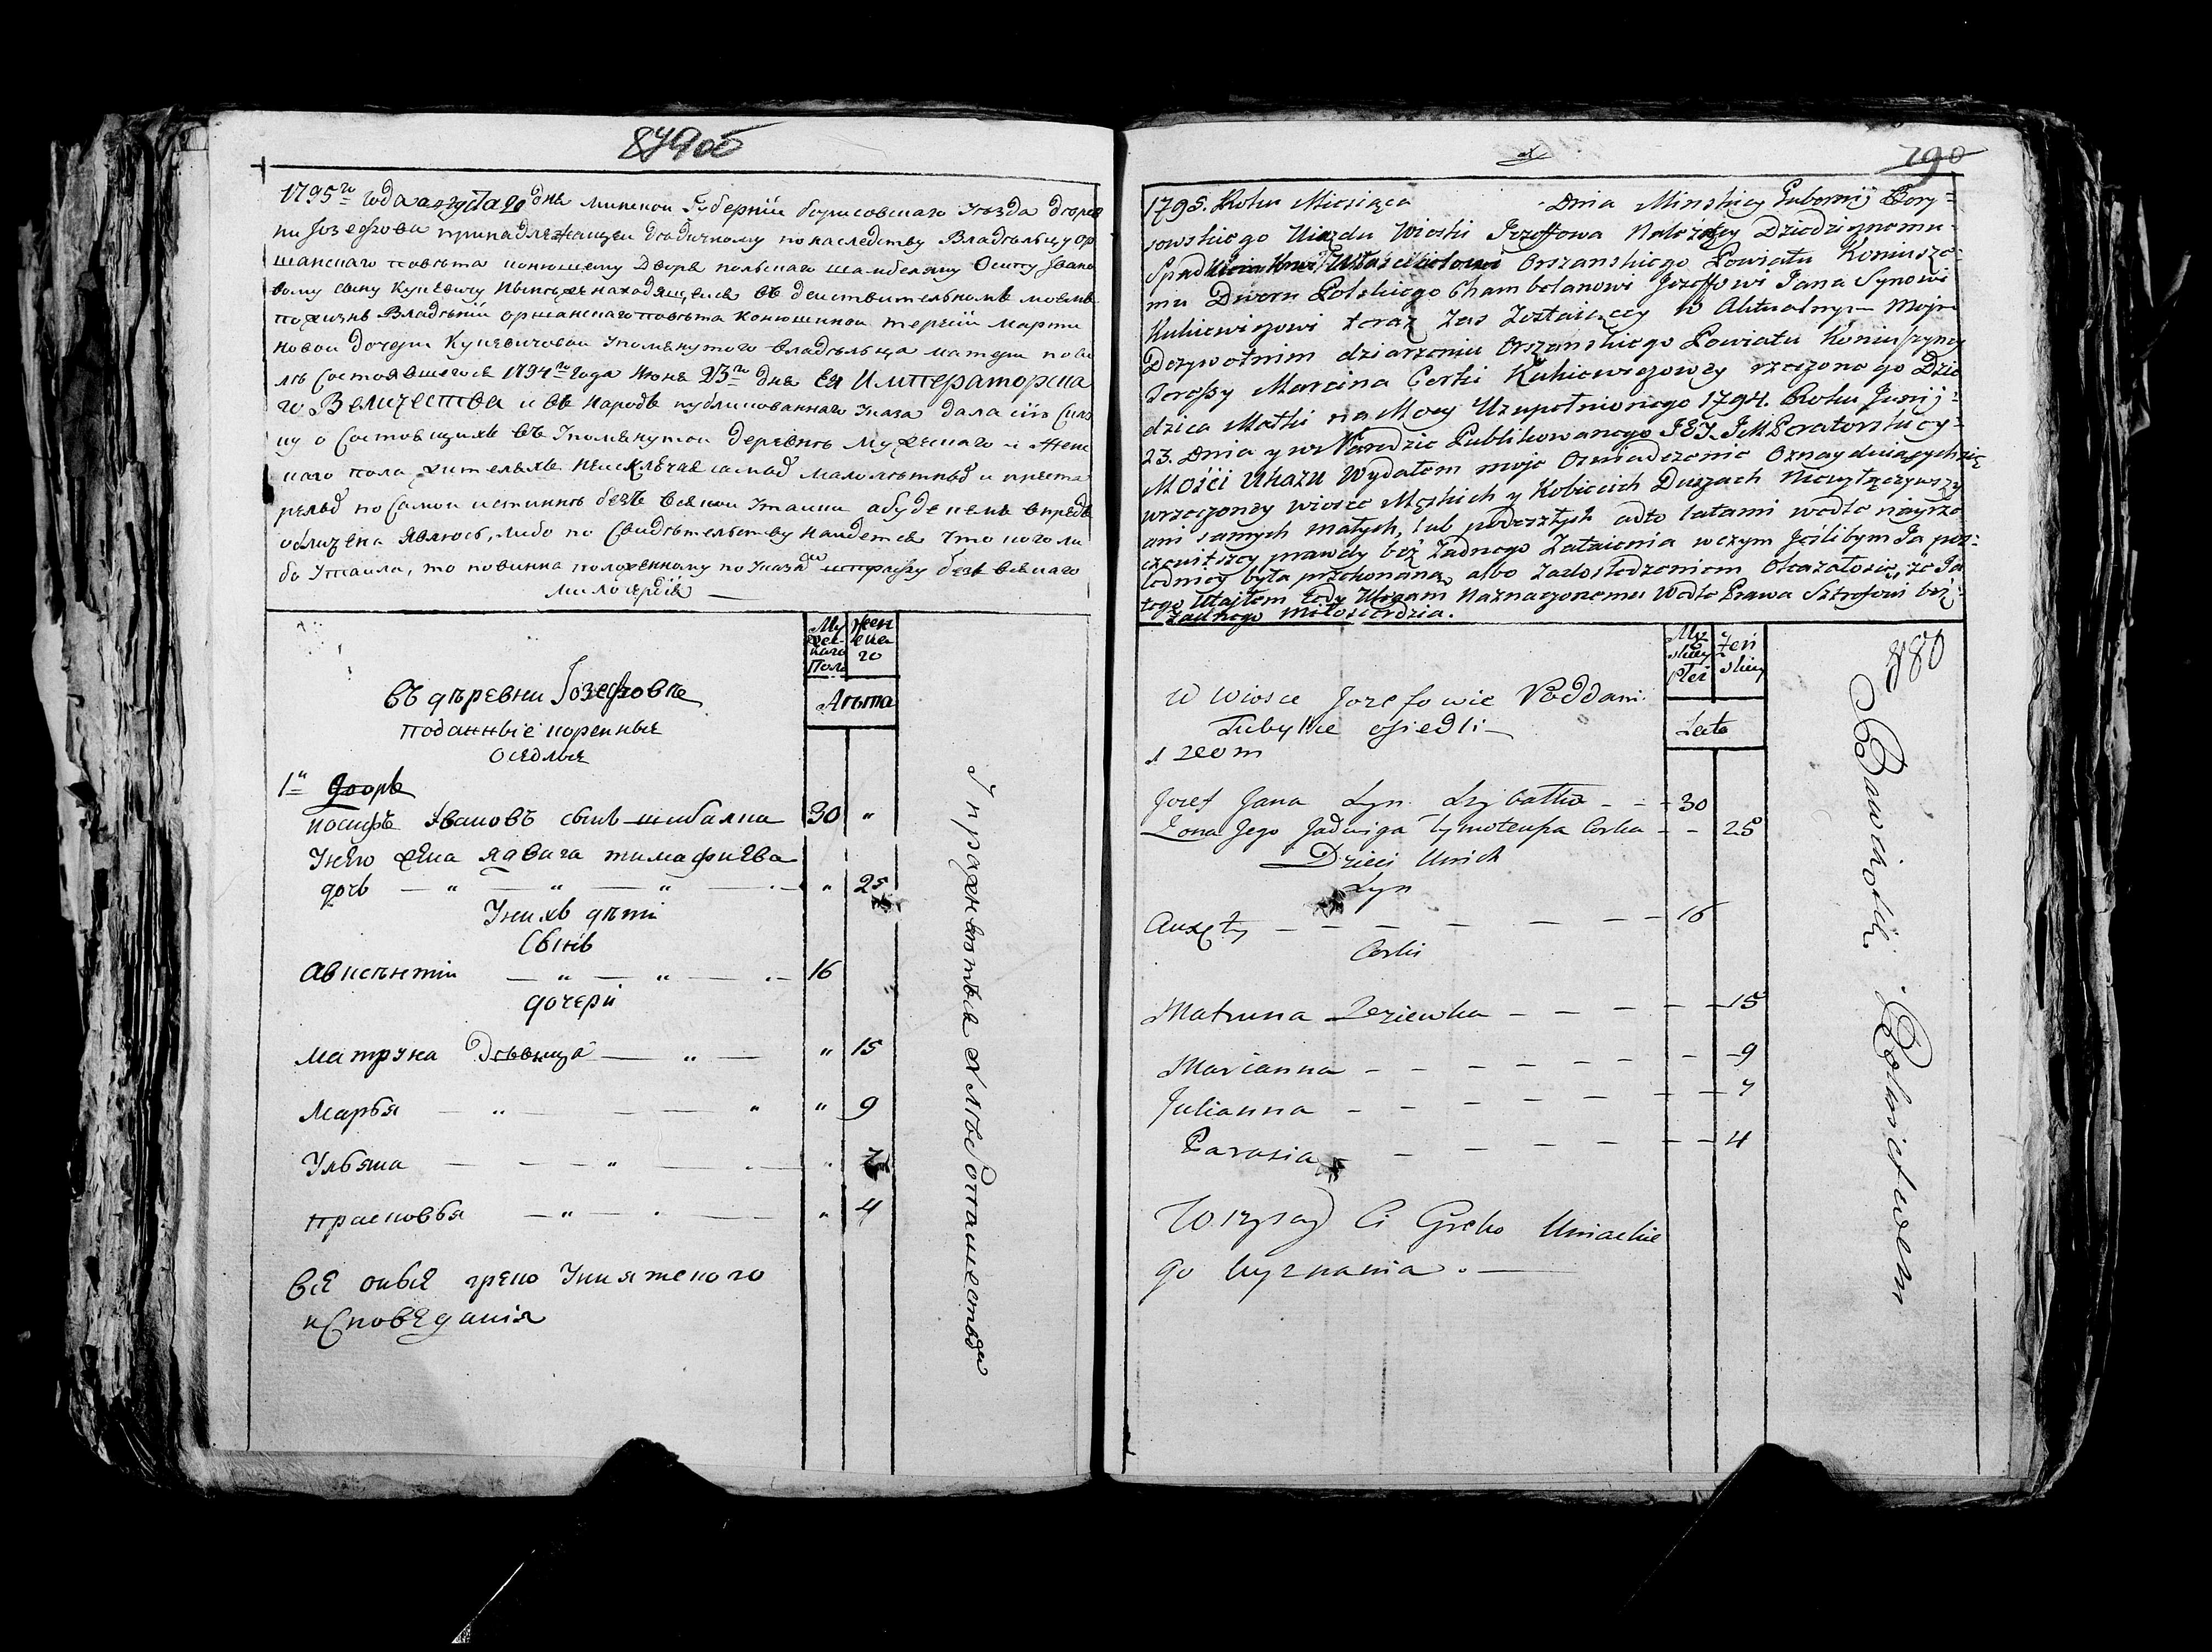 879об
1795го года августа 20 дня минской Губернии борисовскаго уезда дерев
ни Iозефова принадлежащеи дедичному по наследству Владельцу ор
шанскаго повета конюшему Двора польскаго шамбеляну Осипу Ивано
вому сыну Куцевичу нынеже находящеися въ действительномъ моемъ
пожизнь Владении оршанскаго повета конюшинои терезии Марти
новои дочери Куцевичовои упомянутого владельца матери по си
ле состоявшегося 1794го года Июня 23го дня Ея Императорска
го Величества и въ народъ публикованнаго указа дала сию скас
ку о состоящихъ въ упомянутои деревне мужескаго и женс
каго пола жителяхъ неисключая самыхъ малолетныхъ и преста
релыхъ по самои истинне безъ всякои утаики а буде кемъ впредь
обличена явлюсь, либо по свидетельству наидется что кого ли
бо утаила, то повинна положенному по указамъ штрафу безъ всякаго
милосердія
Му жес каго Пола
Женс ка го
въ деревни Iозефове
Лета
поданные коренные
оседлые
1и дворъ
иосифъ Ивановъ сынъ шибалка 30 "
У него жена ядвига тимафиева
дочь — " — " — " — " 25
У нихъ дети
Сынъ
Авксентии — " — " — 16
дочери
матруна Девица — " — " 15
Марья — " — — — " " 9
Ульяна — — — " — — " 7
прасковья — " — — — " 4
все оные греко Униятского
исповедания
Упражняются хлебопашествомъ
790
1795. Roku Miesiąca Dnia Minskiey Gubernij Bory=
sowskiego Uiazdu Wioski Jozeffowa Należący Dziedzicznemu
Spadkiem Właścicielowi Orszanskiego Powiatu Koniusze=
mu Dworu Polskiego Chambelanowi Jozeffowi Jana Synowi
Kukiewiczowi teraz zas zostaiącey w Aktualnym Moim
Dozywotnim dziarzeniu Orszanskiego Powiatu Koniuszyney
Teressy Marcina Corki Kukiewiczowey rzeczonego Dzie
dzica Matki na Mocy Uzupełnionego 1794. Roku Junij
23. Dnia y w Narodzie Publikowanego JEJ. IMPeratorskiey=
Mości Ukazu Wydałem moje Oswiadczenie Oznaydujących się
wrzeczoney wiosce Męskich y Kobiecich Duszach Niewyłączywszy
ani samych małych, lub podeszłych adto latami wedle nayrze
czewistszey prawdy bez żadnego Zataienia w czym Jeślibym Ja pos=
ledniey była przekonana, albo zaszledzeniem Okazałosię, że Ja
tego Utaiłem tedy Ulegam Naznaczonemu Wedle Prawa Sztrofowi bez
żadnego miłosierdzia.
Mę skiey Płci
Żeń skiey
880
W Wiosce Jozefowie Poddani
Lata
Tubylne osiedli
1 Dom
Jozef Jana Syn Szybałka - - - 30
Zona Jego Jadwiga Tymoteusza Corka - - 25
Dzieci Unich
Syn
Auxęty — — — — — — — 16
Corki
Matruna Dziewka — — — — — 15
Marianna — — — — — — 9
Julianna — — — — — — 7
Parasia — — — — — — 4
Wszyscy Ci Greko Uniackie
go wyznania.
Bawią się Rolnictwem